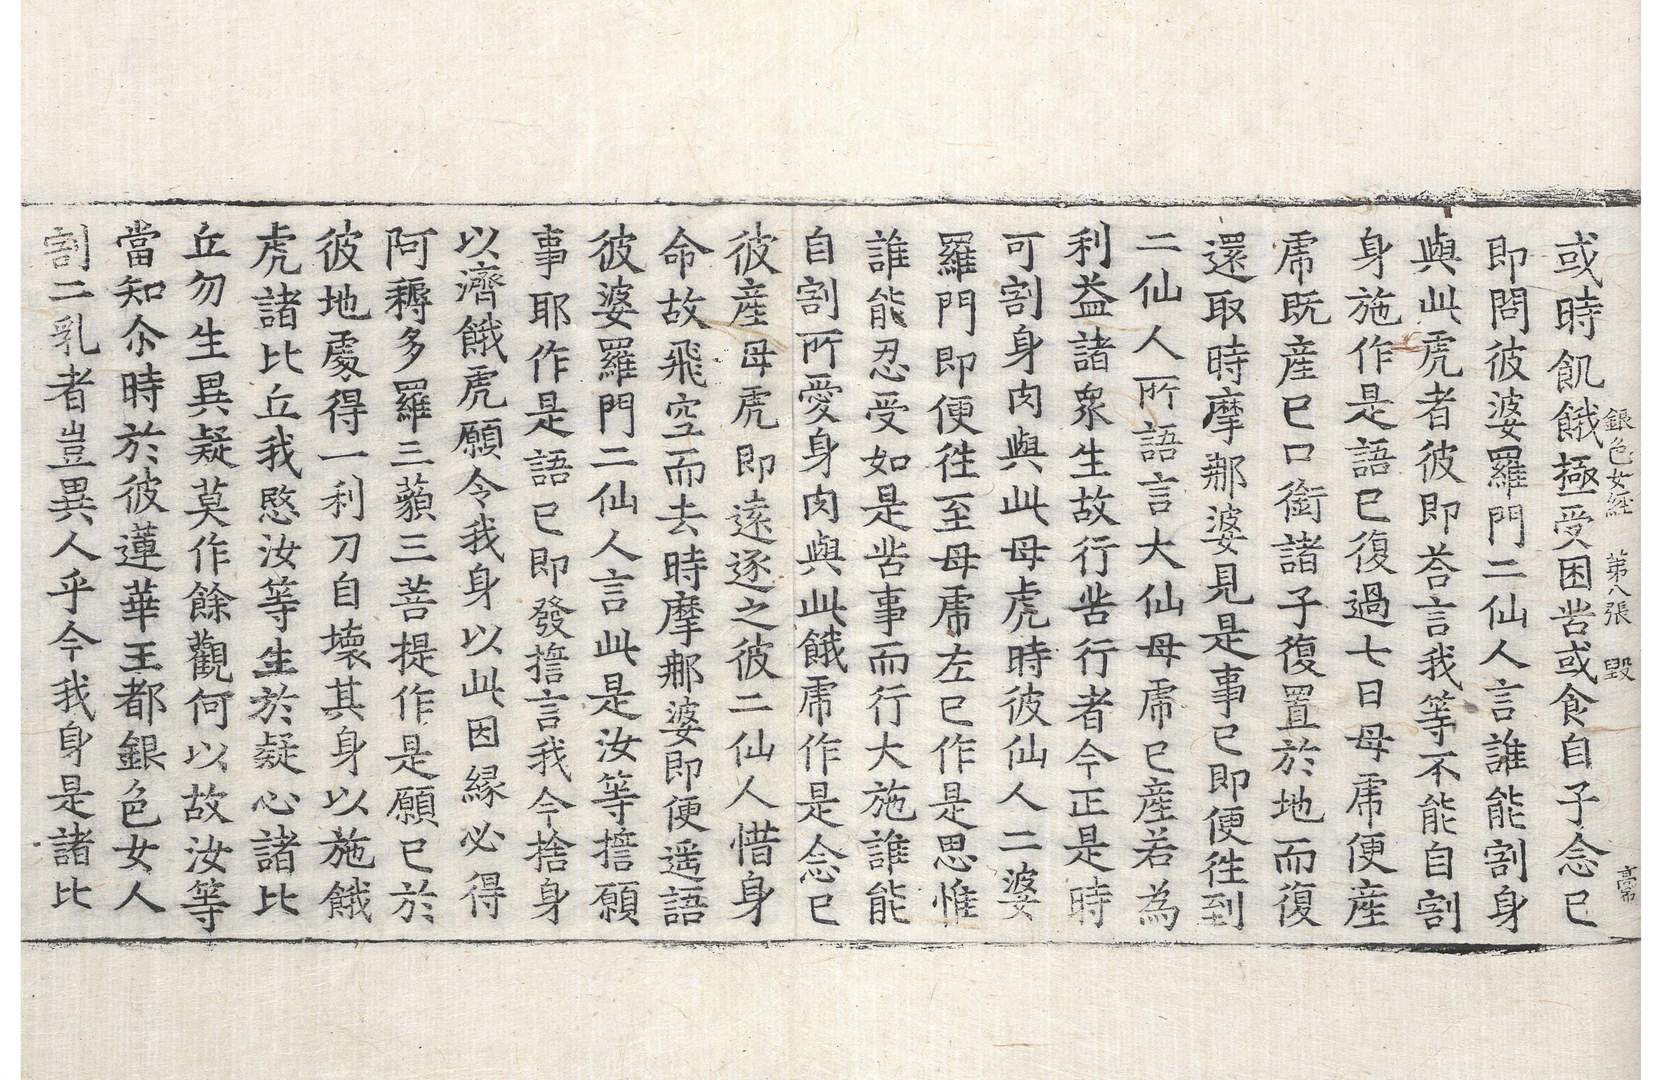 銀色女經 第八張 毀
或時飢餓極受困苦或食自子念已
即問彼婆羅門二仙人言誰能割身
與此虎者彼即荅言我等不能自割
身施作是語已復過七日母虎便産
虎既産已口銜諸子復置於地而復
還取時摩那婆見是事已即便往到
二仙人所語言大仙母虎已産若為
利益諸衆生故行苦行者今正是時
可割身肉與此母虎時彼仙人二婆
羅門即便往至母虎左已作是思惟
誰能忍受如是苦事而行大施誰能
自割所愛身肉與此餓虎作是念已
彼産母虎即遠逐之彼二仙人惜身
命故飛空而去時摩那婆即便遥語
彼婆羅門二仙人言此是汝等誓願
事耶作是語已即發誓言我今捨身
以濟餓虎願令我身以此因縁必得
阿耨多羅三藐三菩提作是願已於
彼地處得一利刀自壞其身以施餓
虎諸比丘我愍汝等生於疑心諸比
丘勿生異疑莫作餘觀何以故汝等
當知尒時於彼蓮華王都銀色女人
割二乳者豈異人乎今我身是諸比